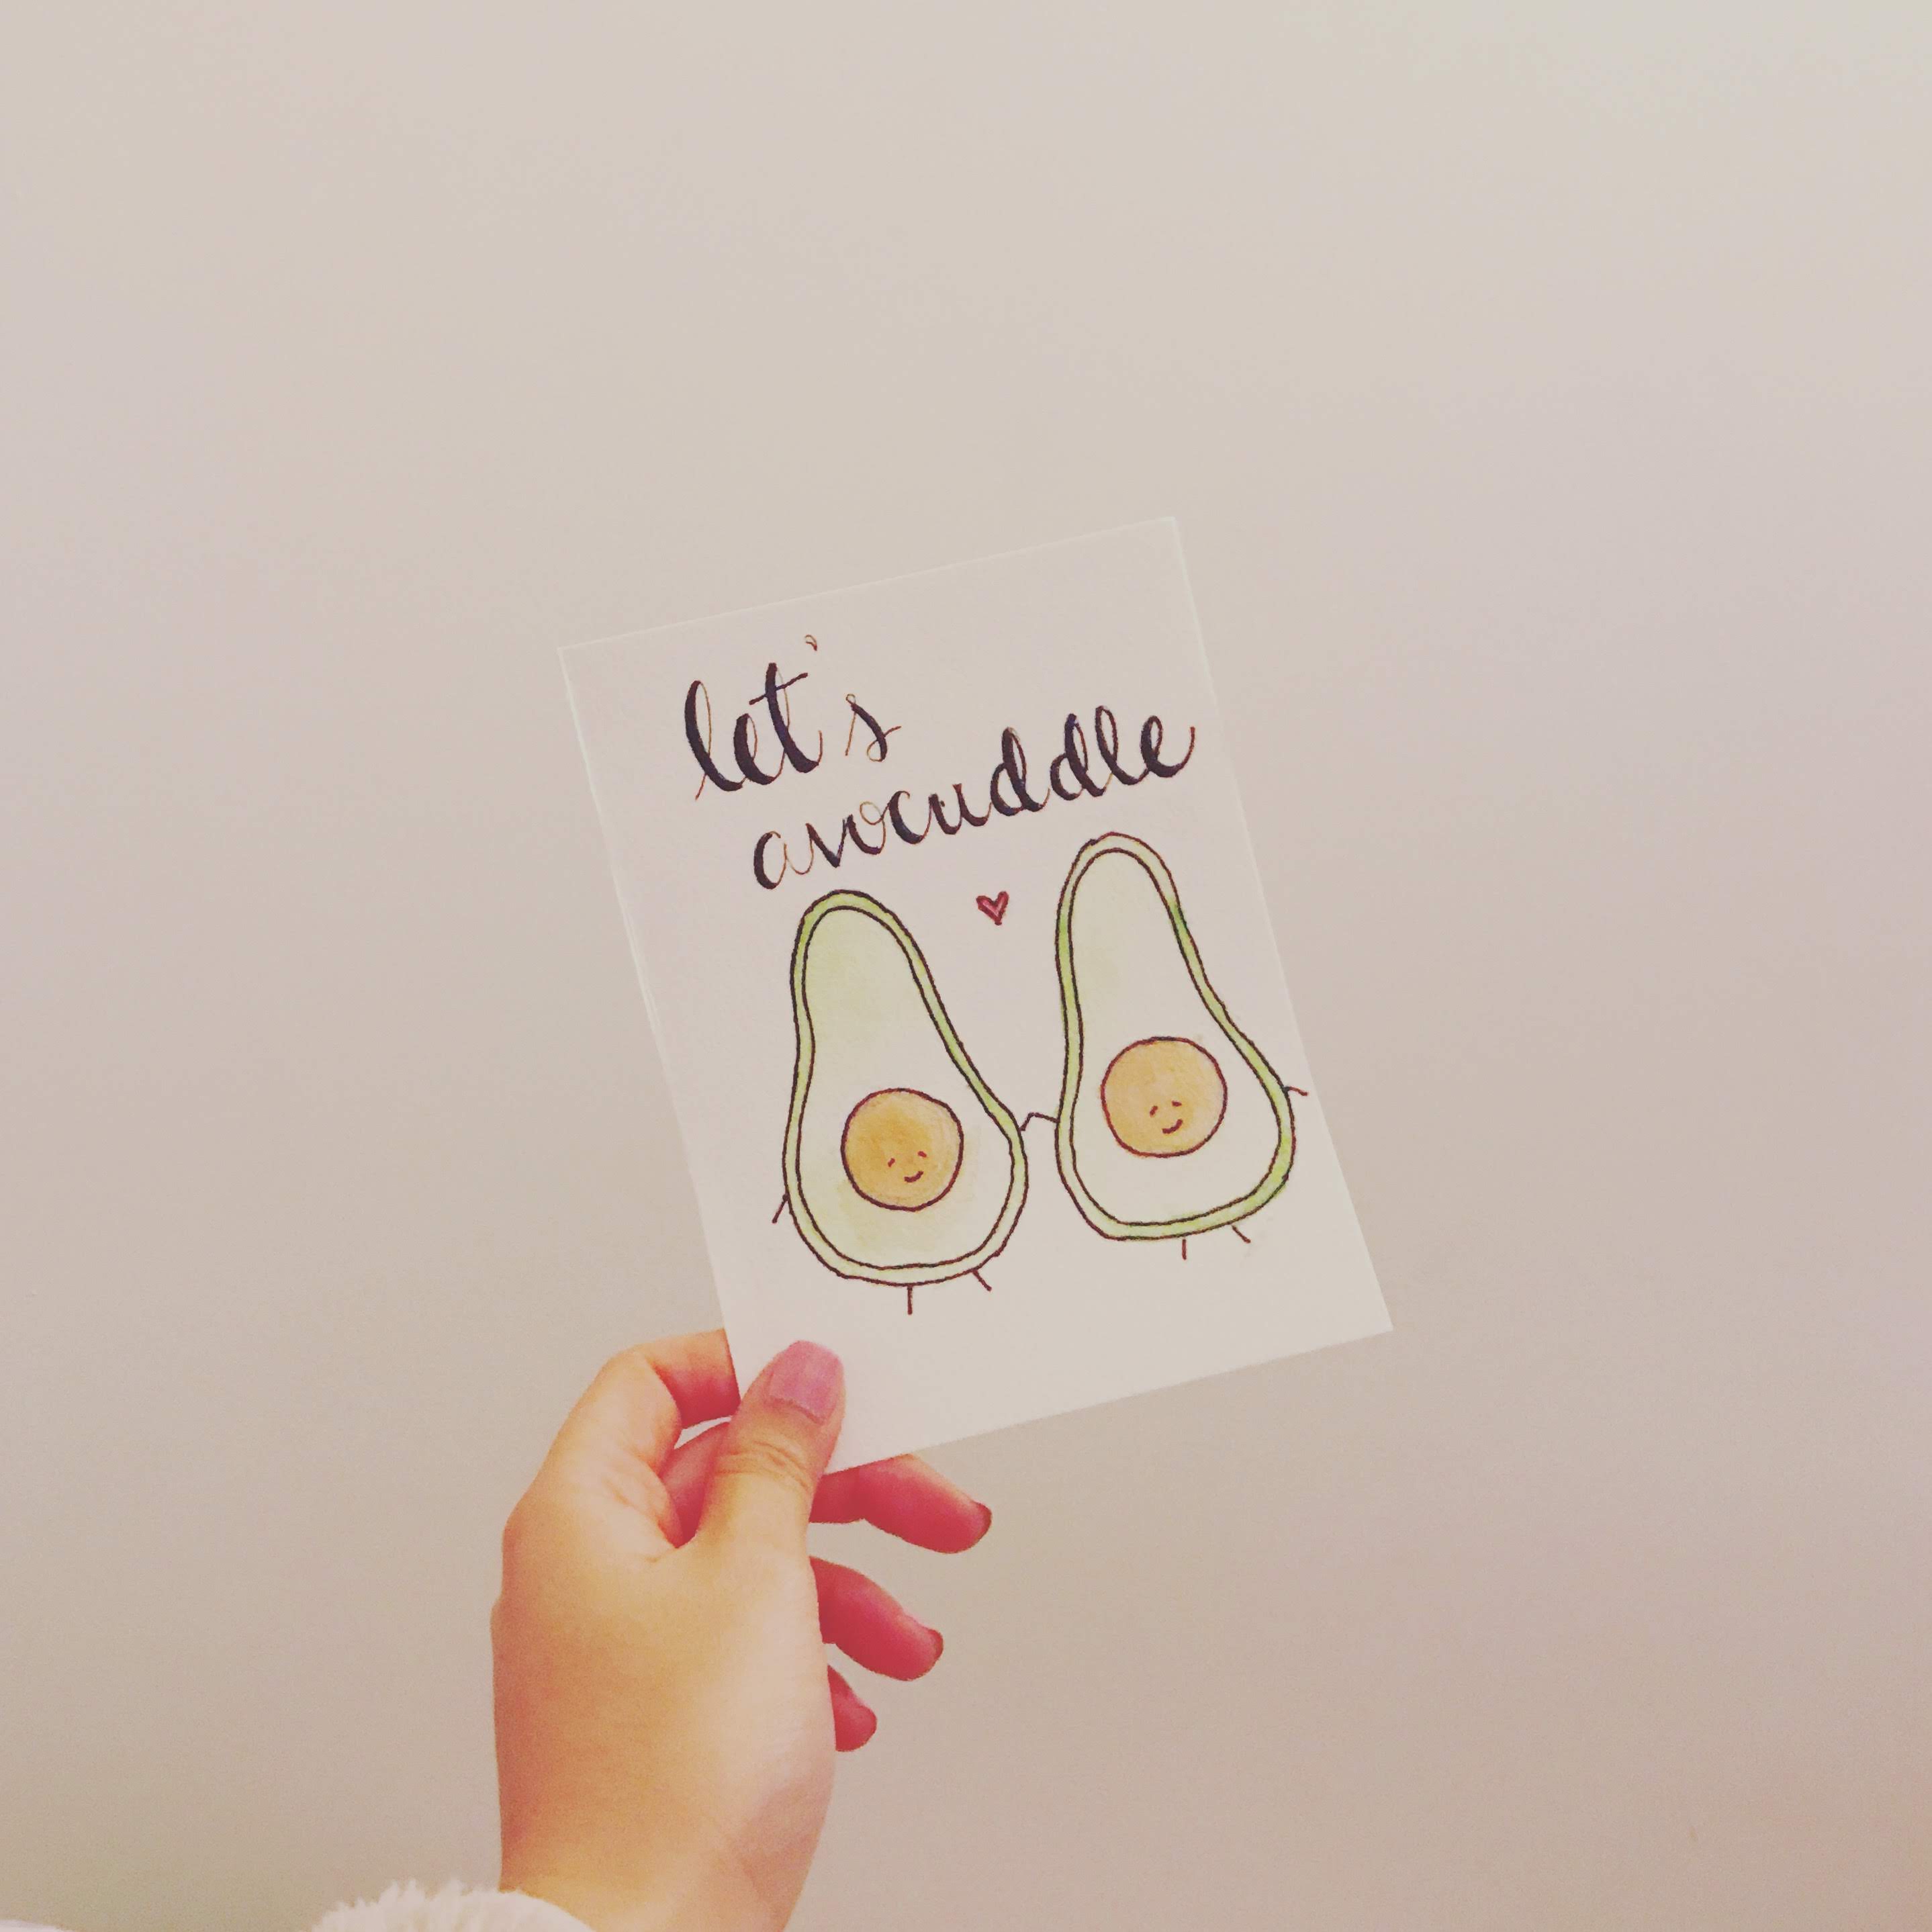 let's
avocuddle